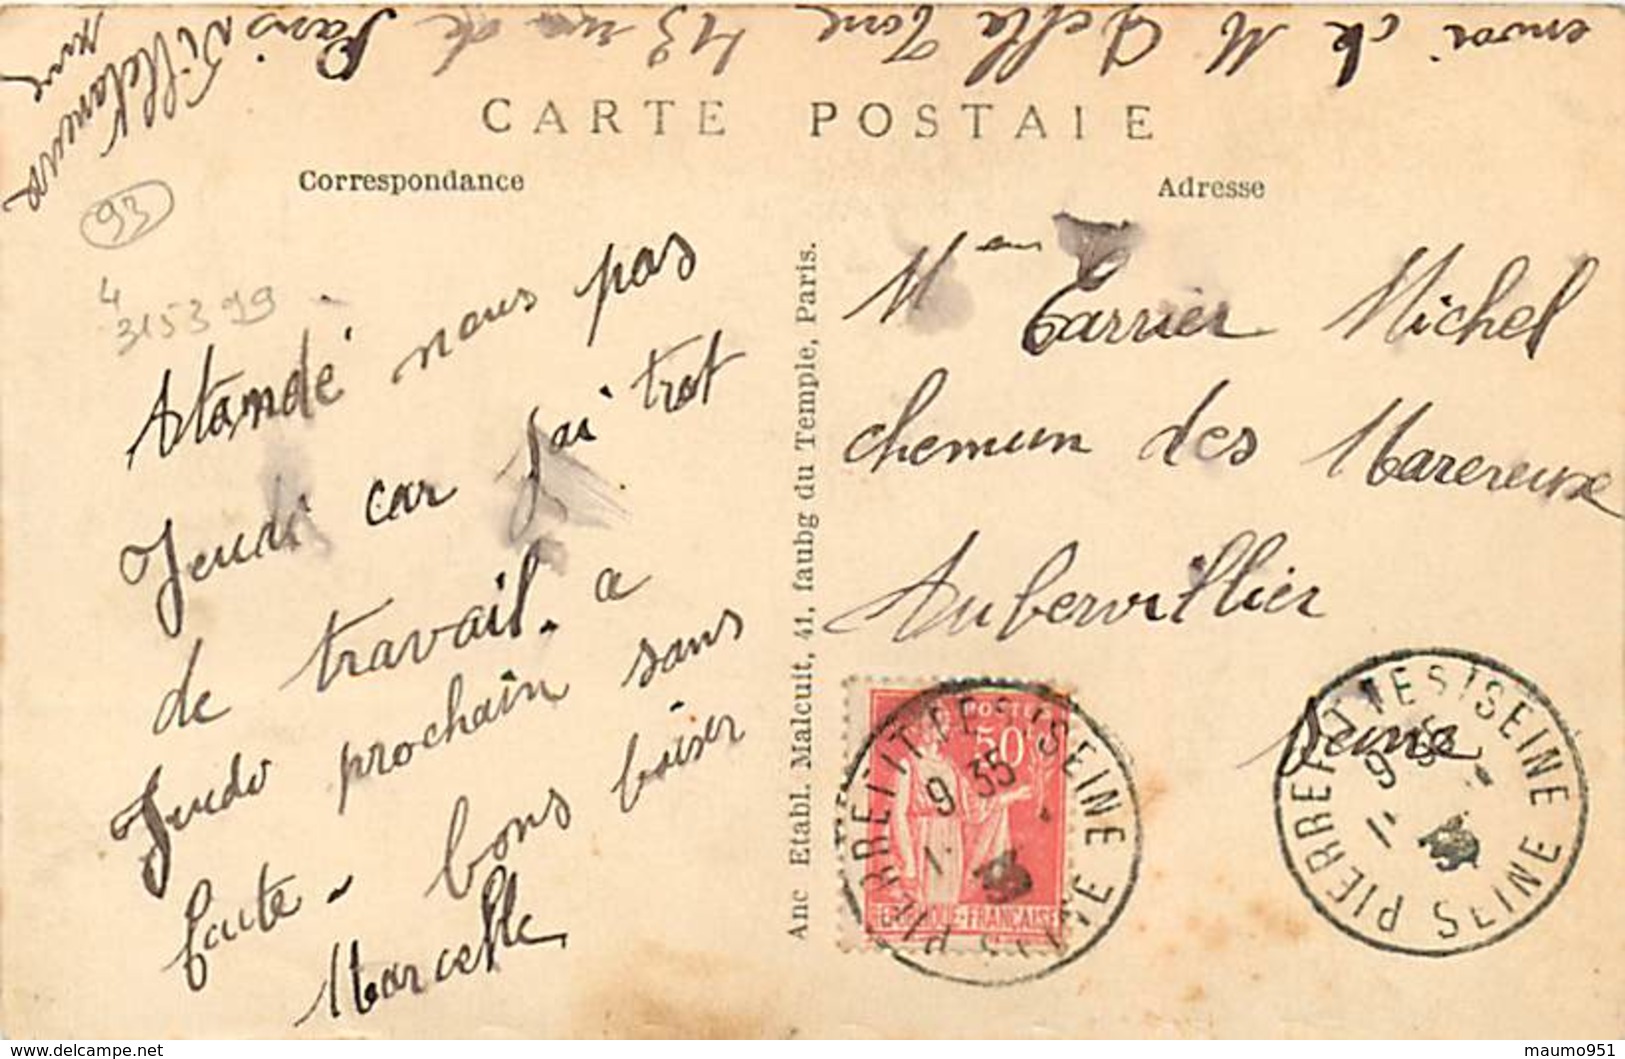 envoi de M Della Torre 43 rue de Paris Villetaneuse
Seine
CARTE POSTALE
Correspondance
Adresse
93
4
315399
Atandé nous pas
Jeudi car jai trot
de travail. a
Jeudi prochain sans
faute - bons baiser
Marcelle
Anc Etabl. Malcuit, 41, faubg du Temple, Paris.
Tarrier Michel
chemun des
Aubervillier
Seine
POSTES
50
REPUBLIQUE-FRANÇAISE
PIERREFITTE S/SEINE
9 35
SEINE
PIERREFITTE S/SEINE
9 35
SEINE
delcampe.net
maumo951